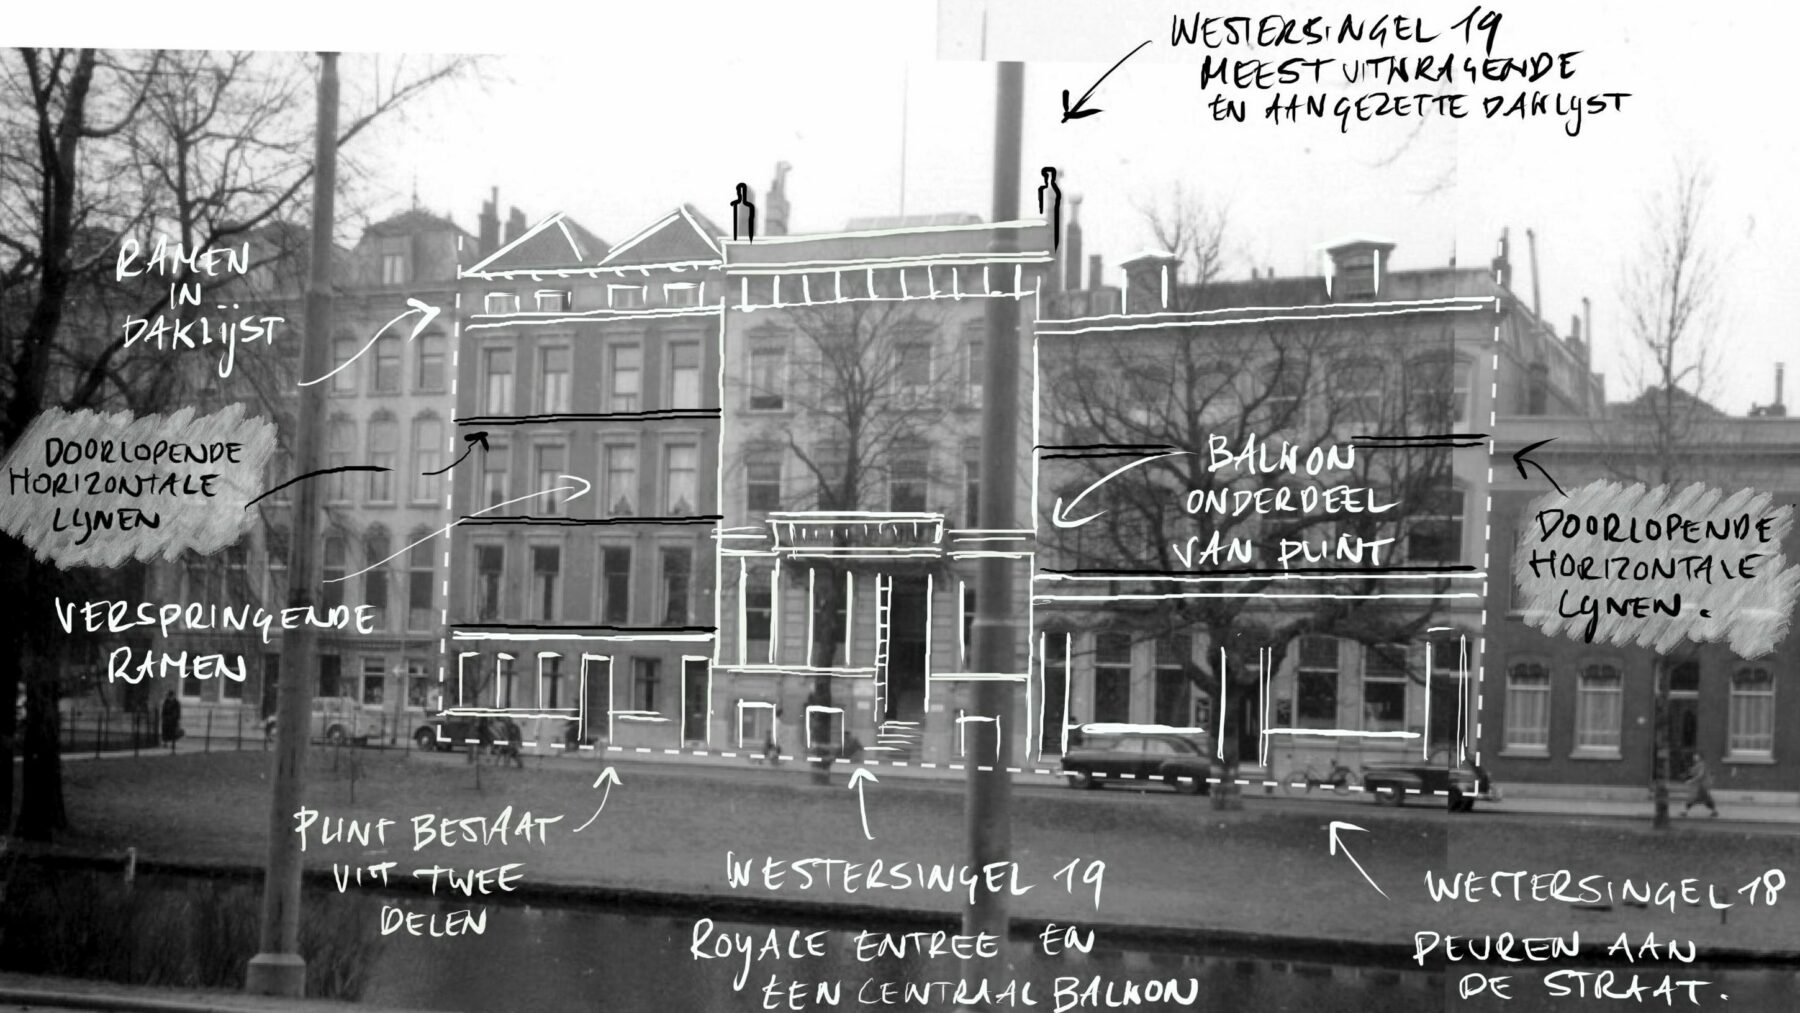 WESTERSINGEL 19
MEEST UITWRAGENDE
EN AANGEZETTE DAKLIJST
RAMEN
IN
DAKLIJST
DOORLOPENDE
HORIZONTALE
LIJNEN
VERSPRINGENDE
RAMEN
BALKON
ONDERDEEL
VAN PLINT
DOORLOPENDE
HORIZONTALE
LIJNEN.
PLINT BESTAAT
UIT TWEE
DELEN
WESTERSINGEL 19
ROYALE ENTREE EN
EEN CENTRAAL BALKON
WESTERSINGEL 18
DEUREN AAN
DE STRAAT.